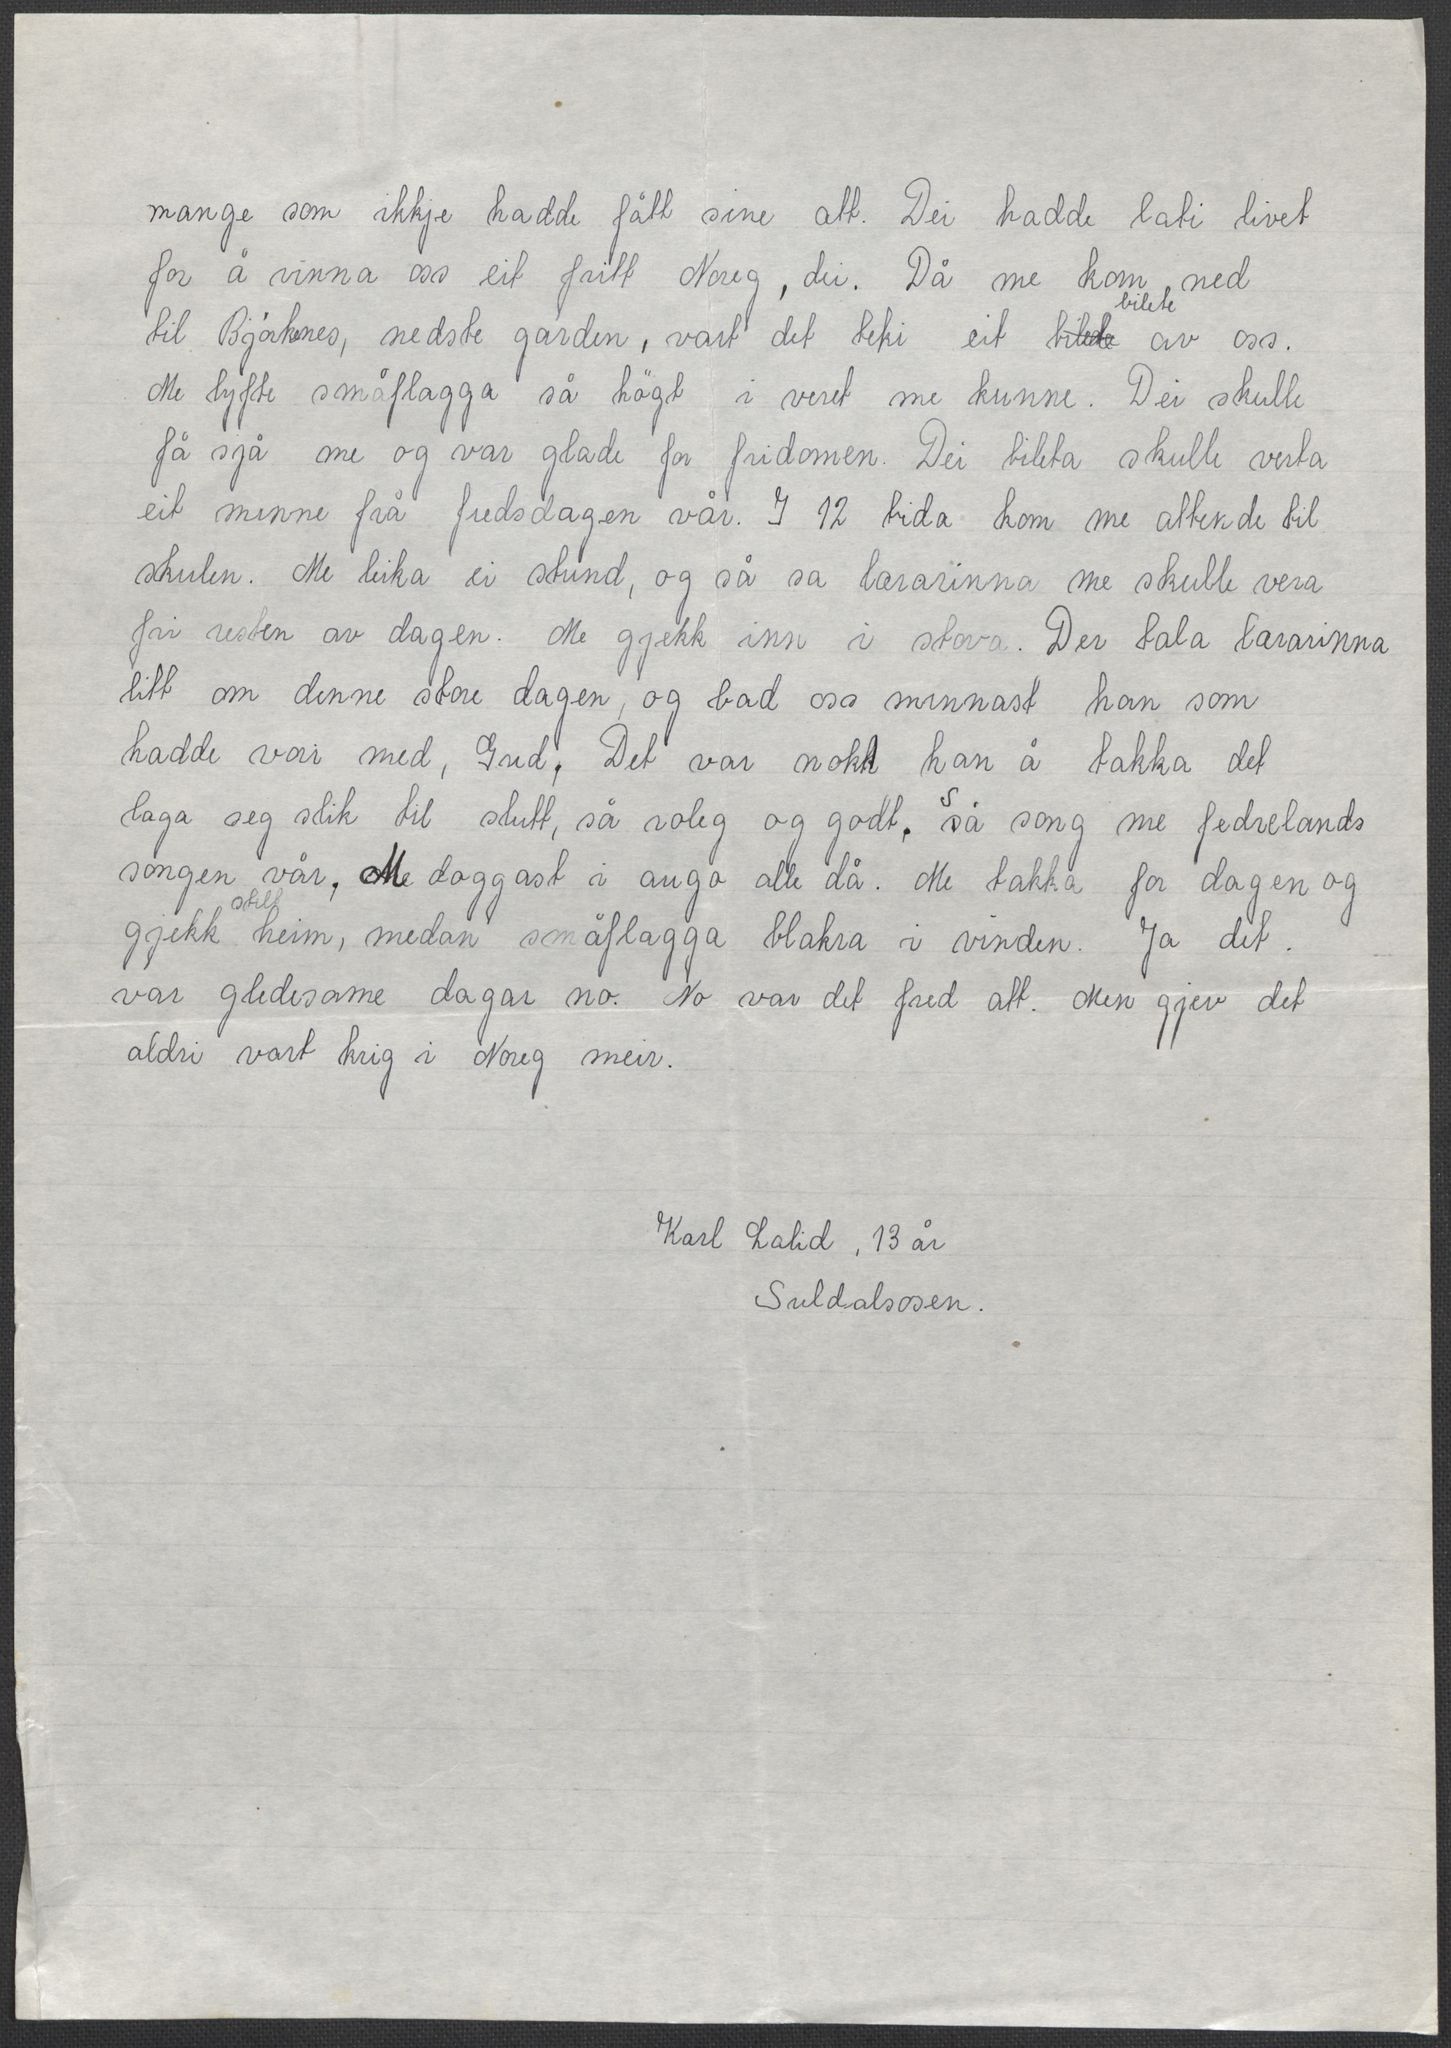 mange som ikkje hadde fått sine att. Dei hadde lati livet
for å vinna oss eit fritt Noreg, dei. Då me kom ned
til Bjørkenes, nedste garden, vart det teki eit bilete av oss.
Me lyfte småflagga så högt i veret me kunne. Dei skulle
få sjå me og var glade for fridomen. Dei bileta skulle verta
eit minne frå fredsdagen vår. I 12 tida kom me attende til
skulen. Me leika ei stund, og så sa lærarinna me skulle vera
fri resten av dagen. Me gjekk inn i stova. Der tala lærarinna
litt om denne store dagen, og bad oss minnast han som
hadde vori med, Gud. Det var nokk han å takka det
laga seg slik til slutt, så roleg og godt. Så song me fedrelands
songen vår. Me doggast i augo alle då. Me takka for dagen og
gjekk stilt heim, medan småflagga blakra i vinden. Ja det.
var gledesame dagar no. No var det fred att. Men gjev det
aldri vart krig i Noreg meir.
Karl Lalid, 13 år
Suldalsosen.